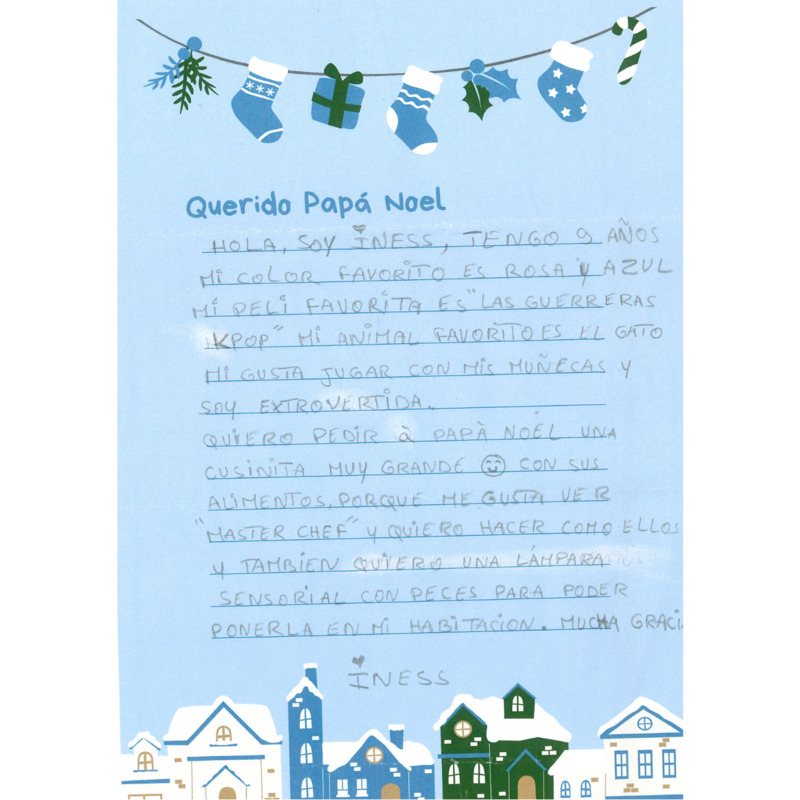 Querido Papá Noel
HOLA, SOY INESS, TENGO 9 AÑOS
MI COLOR FAVORITO ES ROSA Y AZUL
MI PELI FAVORITA ES "LAS GUERRERAS
KPOP" MI ANIMAL FAVORITO ES EL GATO
MI GUSTA JUGAR CON MIS MUÑECAS Y
SOY EXTROVERTIDA.
QUIERO PEDIR à PAPÀ NOEL UNA
CUSINITA MUY GRANDE ☺ CON SUS
ALIMENTOS, PORQUE ME GUSTA VER
"MASTER CHEF" Y QUIERO HACER COMO ELLOS
Y TAMBIEN QUIERO UNA LÁMPARA
SENSORIAL CON PECES PARA PODER
PONERLA EN MI HABITACION. MUCHA GRACI
INESS